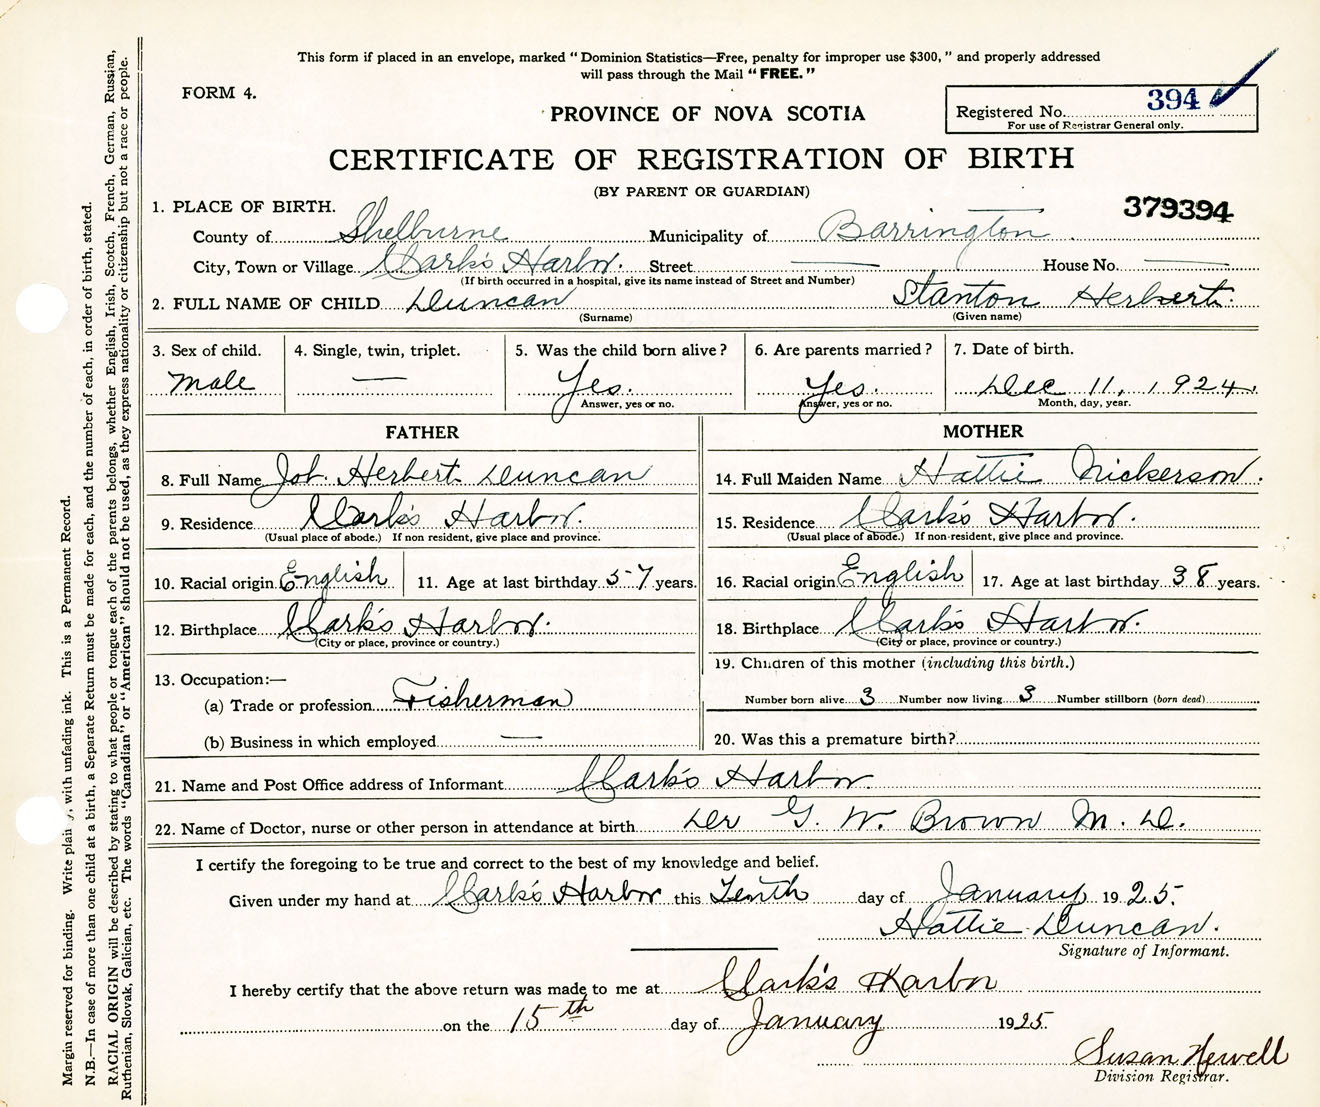 This form if placed in an envelope, marked "Dominion Statistics—Free, penalty for improper use $300," and properly addressed
will pass through the Mail "FREE."
FORM 4.
PROVINCE OF NOVA SCOTIA
Registered No. 394
For use of Registrar General only.
CERTIFICATE OF REGISTRATION OF BIRTH
(BY PARENT OR GUARDIAN)
379394
1. PLACE OF BIRTH.
County of Shelburne Municipality of Barrington
City, Town or Village Clark's Harbor. Street — House No. —
(If birth occurred in a hospital, give its name instead of Street and Number)
2. FULL NAME OF CHILD Duncan Stanton Herbert.
(Surname) (Given name)
3. Sex of child. 4. Single, twin, triplet. 5. Was the child born alive? 6. Are parents married? 7. Date of birth.
Male — Yes. Yes. Dec 11, 1924.
Answer, yes or no. Answer, yes or no. Month, day, year.
FATHER MOTHER
8. Full Name Job. Herbert Duncan 14. Full Maiden Name Hattie Nickerson.
9. Residence Clark's Harbor. 15. Residence Clark's Harbor.
(Usual place of abode.) If non resident, give place and province. (Usual place of abode.) If non-resident, give place and province.
10. Racial origin English 11. Age at last birthday 57 years. 16. Racial origin English 17. Age at last birthday 38 years.
12. Birthplace Clark's Harbor. 18. Birthplace Clark's Harbor.
(City or place, province or country.) (City or place, province or country.)
13. Occupation:— 19. Children of this mother (including this birth.)
(a) Trade or profession Fisherman Number born alive 3 Number now living 3 Number stillborn (born dead)
(b) Business in which employed — 20. Was this a premature birth?
21. Name and Post Office address of Informant Clark's Harbor.
22. Name of Doctor, nurse or other person in attendance at birth Der G. W. Brown M. D.
I certify the foregoing to be true and correct to the best of my knowledge and belief.
Given under my hand at Clark's Harbor this Tenth day of January 1925.
Hattie Duncan.
Signature of Informant.
I hereby certify that the above return was made to me at Clark's Harbor
on the 15th day of January 1925.
Susan Newell
Division Registrar.
Margin reserved for binding. Write plainly, with unfading ink. This is a Permanent Record.
N.B.—In case of more than one child at a birth, a Separate Return must be made for each, and the number of each, in order of birth, stated.
RACIAL ORIGIN will be described by stating to what people or tongue each of the parents belongs, whether English, Irish, Scotch, French, German, Russian,
Ruthenian, Slovak, Galician, etc. The words "Canadian" or "American" should not be used, as they express nationality or citizenship but not a race or people.